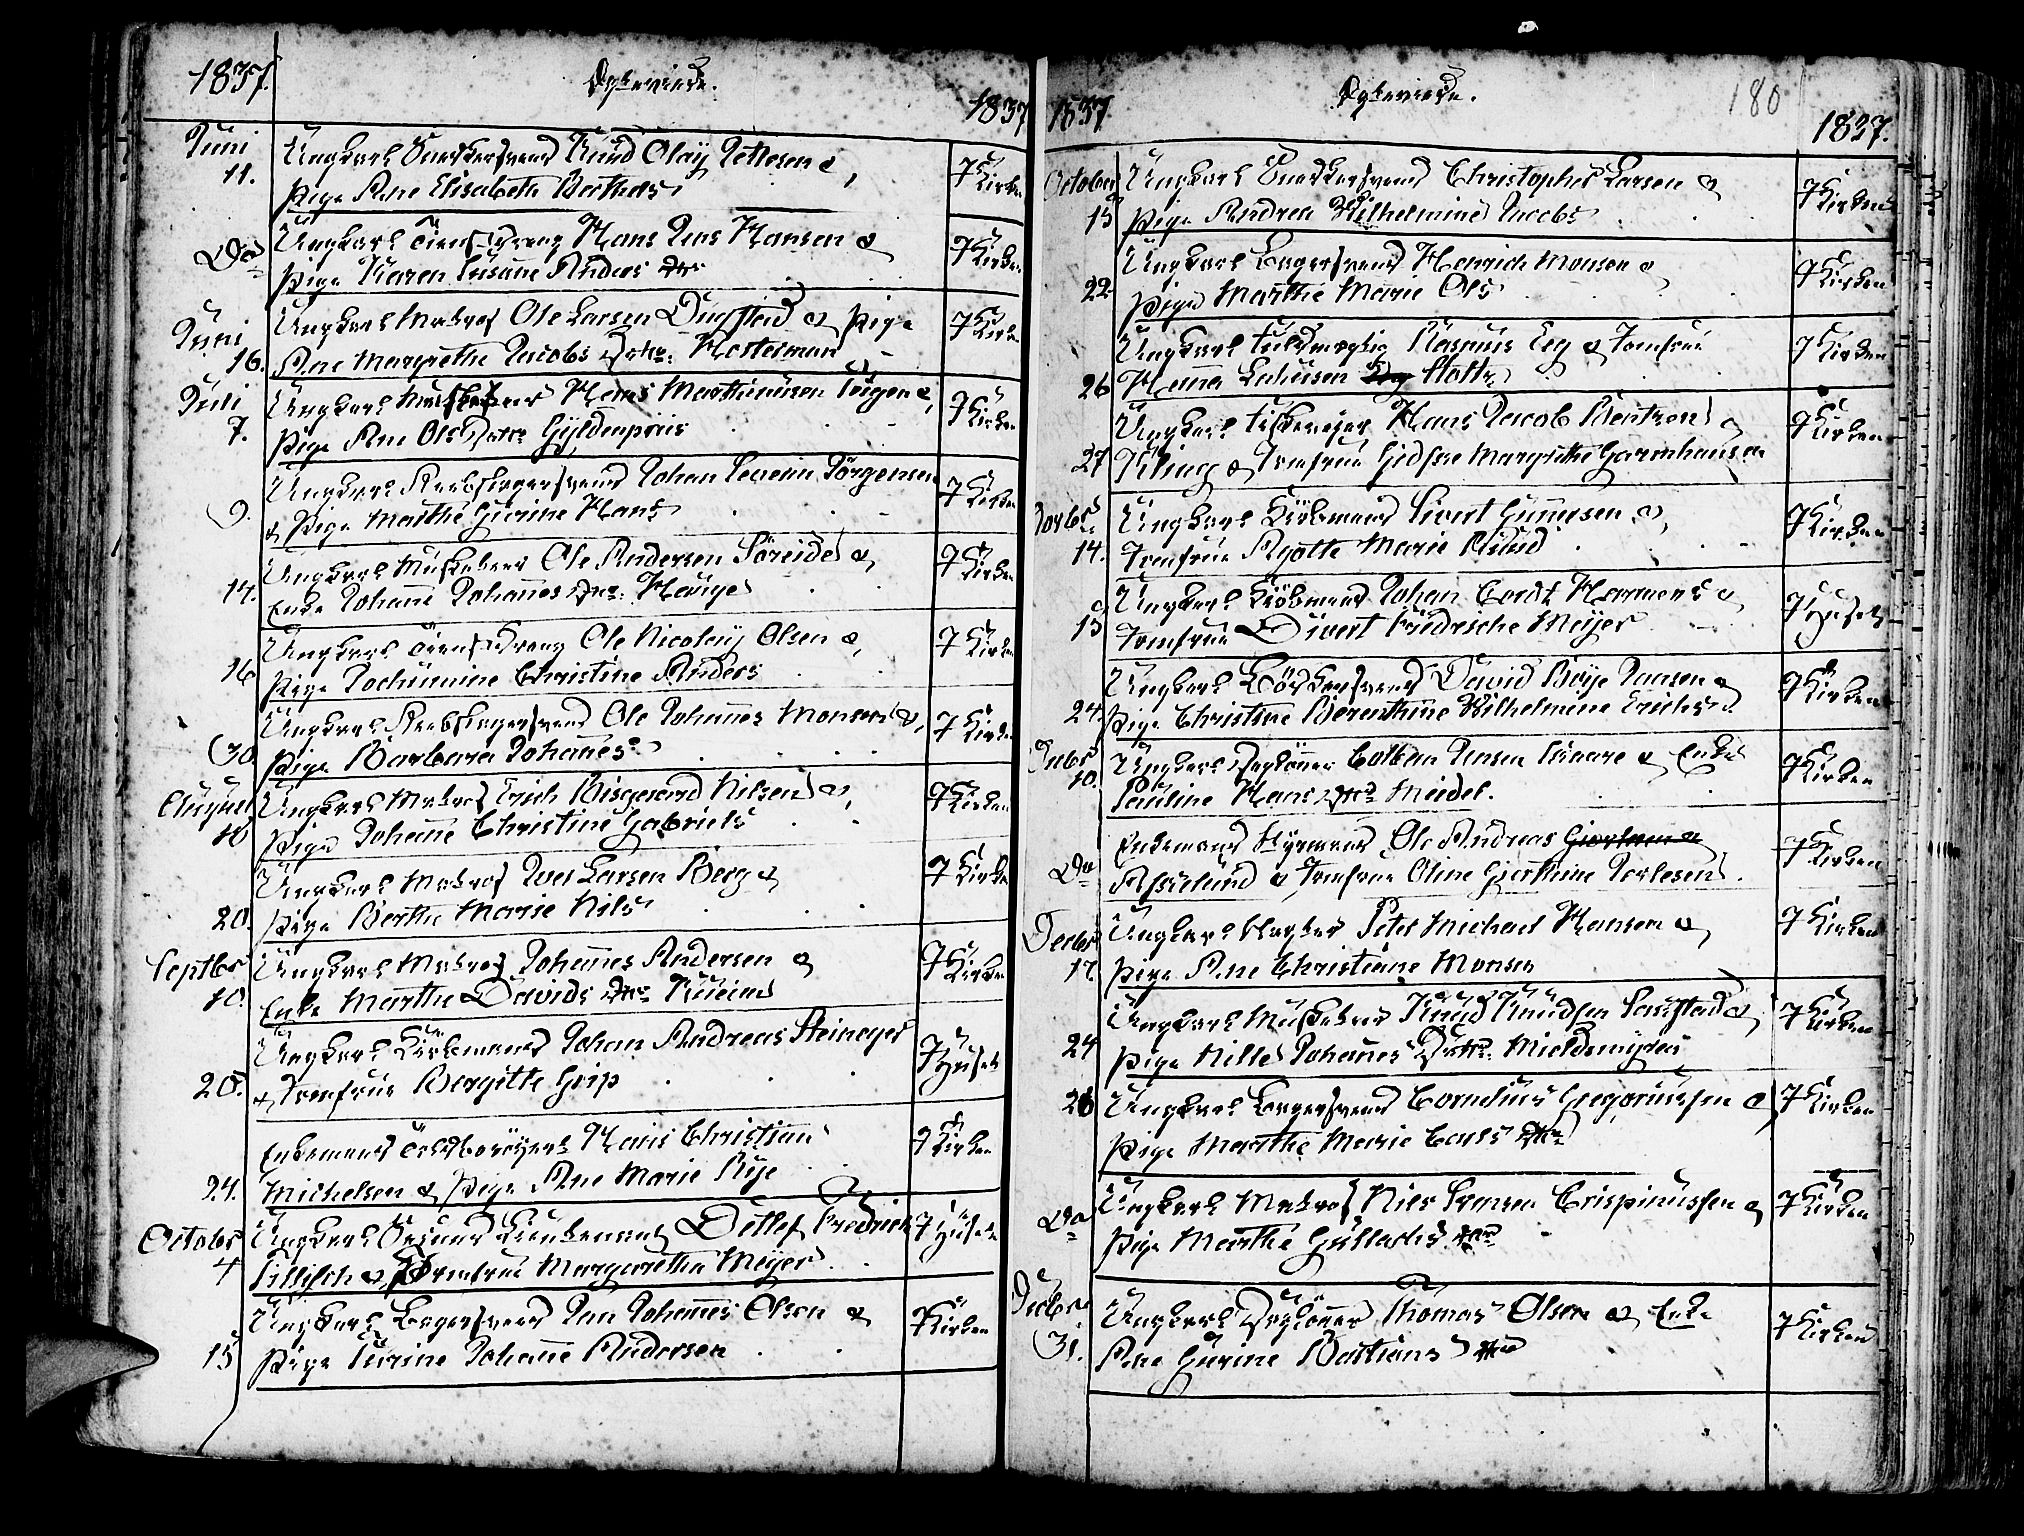 1837.
Egteviede.
1837
Juni
11.
Ungkarl Snedkersvend Knud Olay Pettersen &
Pige Ane Elisabeth Berthes
I Kirken
Do
Ungkarl Tienestdreng Hans Jens Hansen &
Pige Karen Susanne Anders Dtr
I Kirken
Juni
16.
Ungkarl Matros Ole Larsen Dugstad & Pige
Ane Margrethe Jacobs Dotter
I Kirken
Juli
7.
Ungkarl Hans Marthinusen &
Pige Ane Ols Dotter Gyldenpriis
I Kirken
9.
Ungkarl Reebslagersvend Johan Severin Jörgensen
& Pige Marthe Gurine Hans
I Kirken
14.
Ungkarl Musketeer Ole Andersen Söreide &
Enke Johanne Johannes Dtr: Hauge
I Kirken
16
Ungkarl Tienestdreng Ole Nicolay Olsen &
Pige Jochumine Christine Anders
I Kirken
30
Ungkarl Reebslagersvend Ole Johannes Monsen &
Pige Barbara Johannes
I Kirken
August
10
Ungkarl Matros Erich Bisgaard Nilsen &
Pige Johanne Christine Gabriels
I Kirken
20.
Ungkarl Matros Iver Larsen Berg &
Pige Berthe Marie Nils
I Kirken
Septbr
10.
Ungkarl Matros Johannes Andersen &
Enke Marthe Davids Dtr
I Kirken
20.
Ungkarl Kiöbmand Johan Andreas Steineger
& Jomfrue Bergitte Grip
I Huset
24.
Enkemand Hans Christian
Michelsen & Pige Ane Marie Rye
I Kirken
Octobr
4
Ungkarl Lieutenant Detlef Fredrich
& Jomfrue Margaretha Meyer
I Huset
15
Ungkarl Bagersvend Jan Johannes Olsen &
Pige Surine Johanne Andersen
I Kirken
1837
Egteviede.
180
1837.
October
15
Ungkarl Snedkersvend Christopher Larsen &
Pige Andrea Wilhelmine Jacobs
I Kirken
22
Ungkarl Bagersvend Henrich Monsen &
Pige Marthe Marie Ols
I Kirken
26
Ungkarl Fuldmegtig Rasmus Eeg & Jomfrue
Hanna Holtz
I Kirken
27
Ungkarl Hans Jacob Berntzen
Kling & Jomfrue Gidsche Margrethe Garmhausen
I Kirken
Novbr
14.
Ungkarl Kiöbmand Sivert Gunersen &
Jomfrue Agatte Marie
I Kirken
15
Ungkarl Kiöbmand Johan Cordt Harmens &
Jomfrue Divert Fridrische Meyer
I Huset
24.
Ungkarl Bödkersvend David Böye Jansen &
Pige Christine Berenthine Wilhelmine Erichsen
I Kirken
Decbr
10.
Ungkarl Daglönner Colben Jensen & Enke
Pauline Hans Dtr Meidel.
I Kirken
Do
Enkemand Styrmand Ole Andreas
Asselund & Jomfrue Oline Gierthine Torlesen
I Kirken
Decbr
17.
Ungkarl Slagter Peter Michael Hansen &
Pige Ane Christiane Monsen
I Kirken
24
Ungkarl Musketeer Knud Knudsen &
Pige Nille Johannes Dotter: Mieldemyren
I Kirken
26
Ungkarl Bagersvend Cornelius Gregoriussen &
Pige Marthe Marie Carls Dtr
I Kirken
Do
Ungkarl Matros Niels Iversen Crispinussen &
Pige Marthe Gullachs Dtr
I Kirken
Decbr
31.
Ungkarl Daglönner Thomas Olsen & Enke
Ane Gurine Bastians Dtr
I Kirken